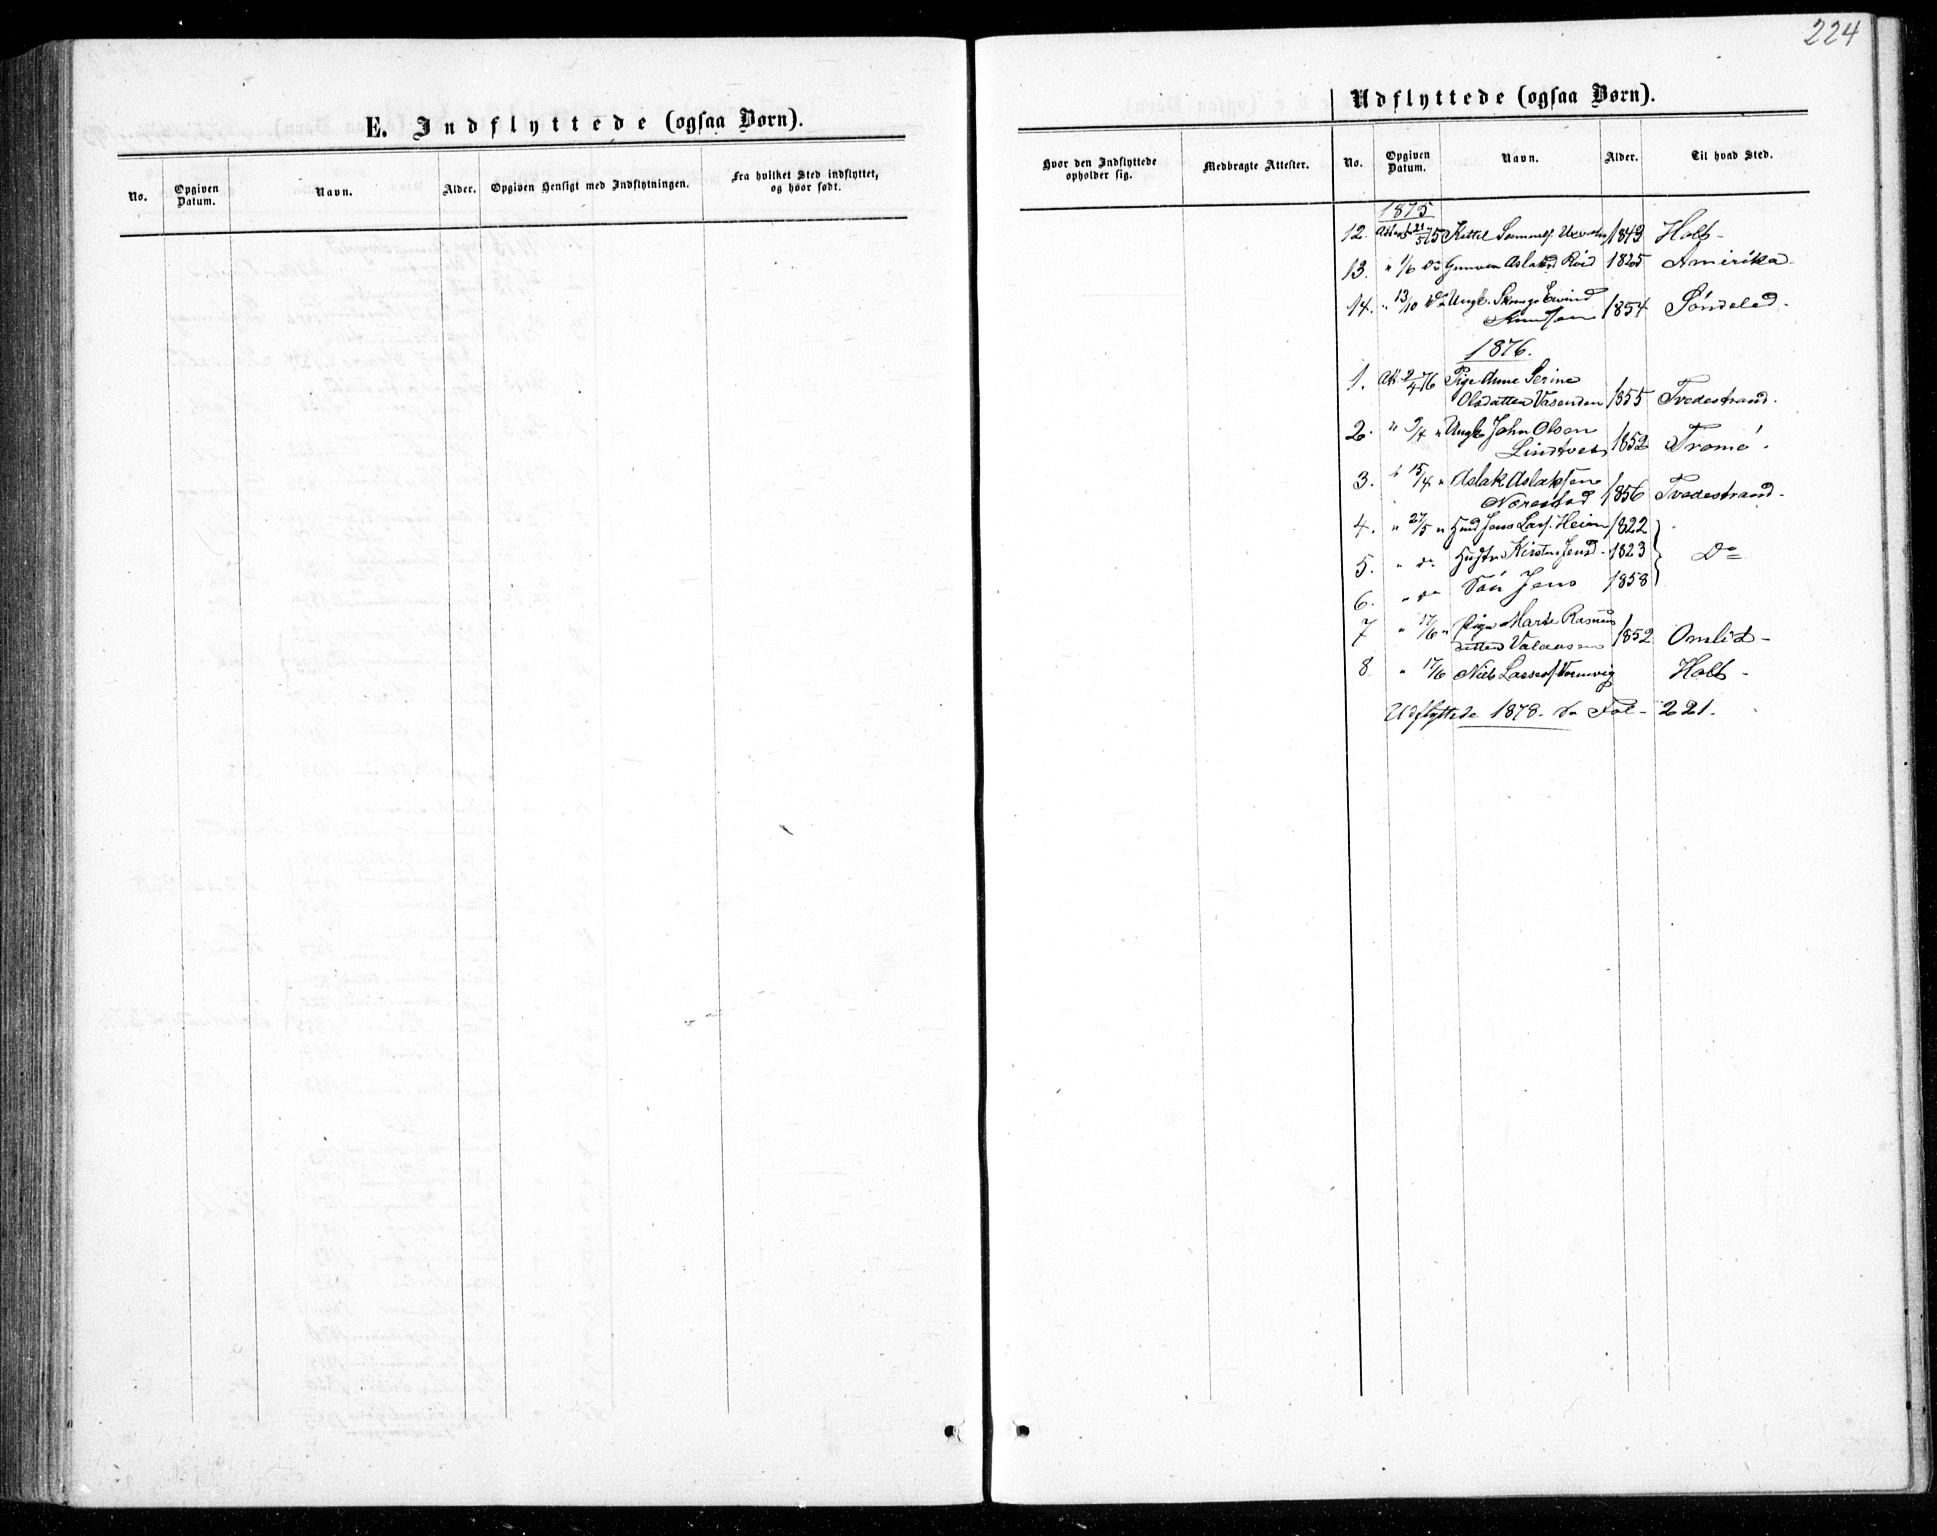 224
E. Indflyttede (ogsaa Børn).
No.
Opgiven Datum.
Navn.
Alder.
Opgiven Hensigt med Indflytningen.
Fra hvilket Sted indflyttet, og hvor født.
Udflyttede (ogsaa Børn).
Hvor den Indflyttede opholder sig.
Medbragte Attester.
No.
Opgiven Datum.
Navn.
Alder.
Til hvad Sted.
1875
12. 21/5 75 Kittel 1843 Holt -
13. " 1/6 do Gunvor Aslaksd Röed 1825 Amerika -
14. " 13/10 do Ungk. Eivind
Knudsen 1854 Söndeled -
1876.
1. Att 2/4 76 Pige Anne Serine
Olsdatter Vasenden 1855 Tvedestrand.
2. " 9/4 " Ungk John Olsen
Lindtveit 1852 Tromö.
3. " 15/4 " Aslak Aslaksen
1856 Tvedestrand -
4. " 27/5 " Jens Lars. Heien 1822
5. " do Hustr Kirsten Jensd - 1823 } Do
6. " do Sön Jens 1858
7 " 17/6 " Pige Marte Rasmus
datter 1852 Omlid -
8 " 17/6 Niels Holt -
Udflyttede 1878. se Fol - 221.